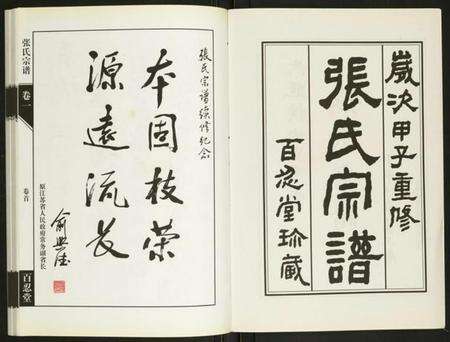 歲次甲子重修
張氏宗譜
百忍堂珍藏
張氏宗譜續修紀念
本固枝荣
源遠流長
俞兴德
原江苏省人民政府常务副省长
张氏宗谱
卷一
卷首
百忍堂